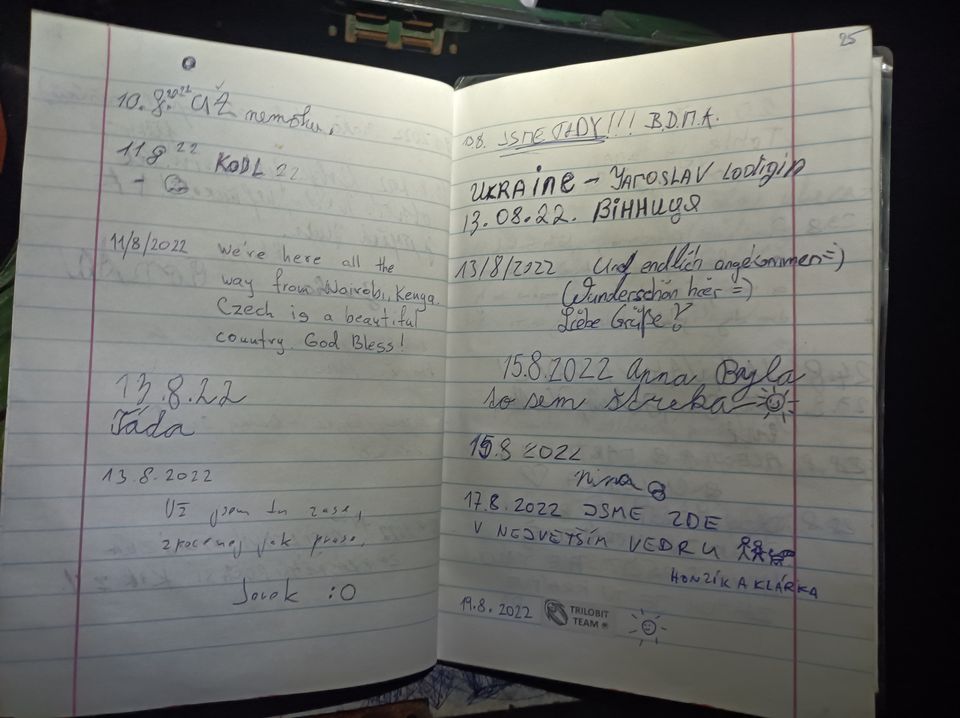 10. 8. 2022 Už nemohu,
11 8 22 KODL 22
11/8/2022 We're here all the
way from Nairobi, Kenya.
Czech is a beautiful
country. God Bless!
13.8.22
Táda
13.8.2022
Už jsem tu zase,
zpocenej jak prase,
Jarok :O
25
10.8. JSME TADY!!! B.D.M.A.
UKRAiNE – YAROSLAV Lodigin
13.08.22. ВІННИЦЯ
13/8/2022 Und endlich angekommen =)
(Wunderschön hier =)
Liebe Grüße
15.8.2022 Anna Bajla
to sem štreka
15.8 2022
Nina
17.8.2022 JSME ZDE
V NEJVĚTŠÍM VEDRU
HONZÍK A KLÁRKA
19.8.2022 TRILOBIT
TEAM